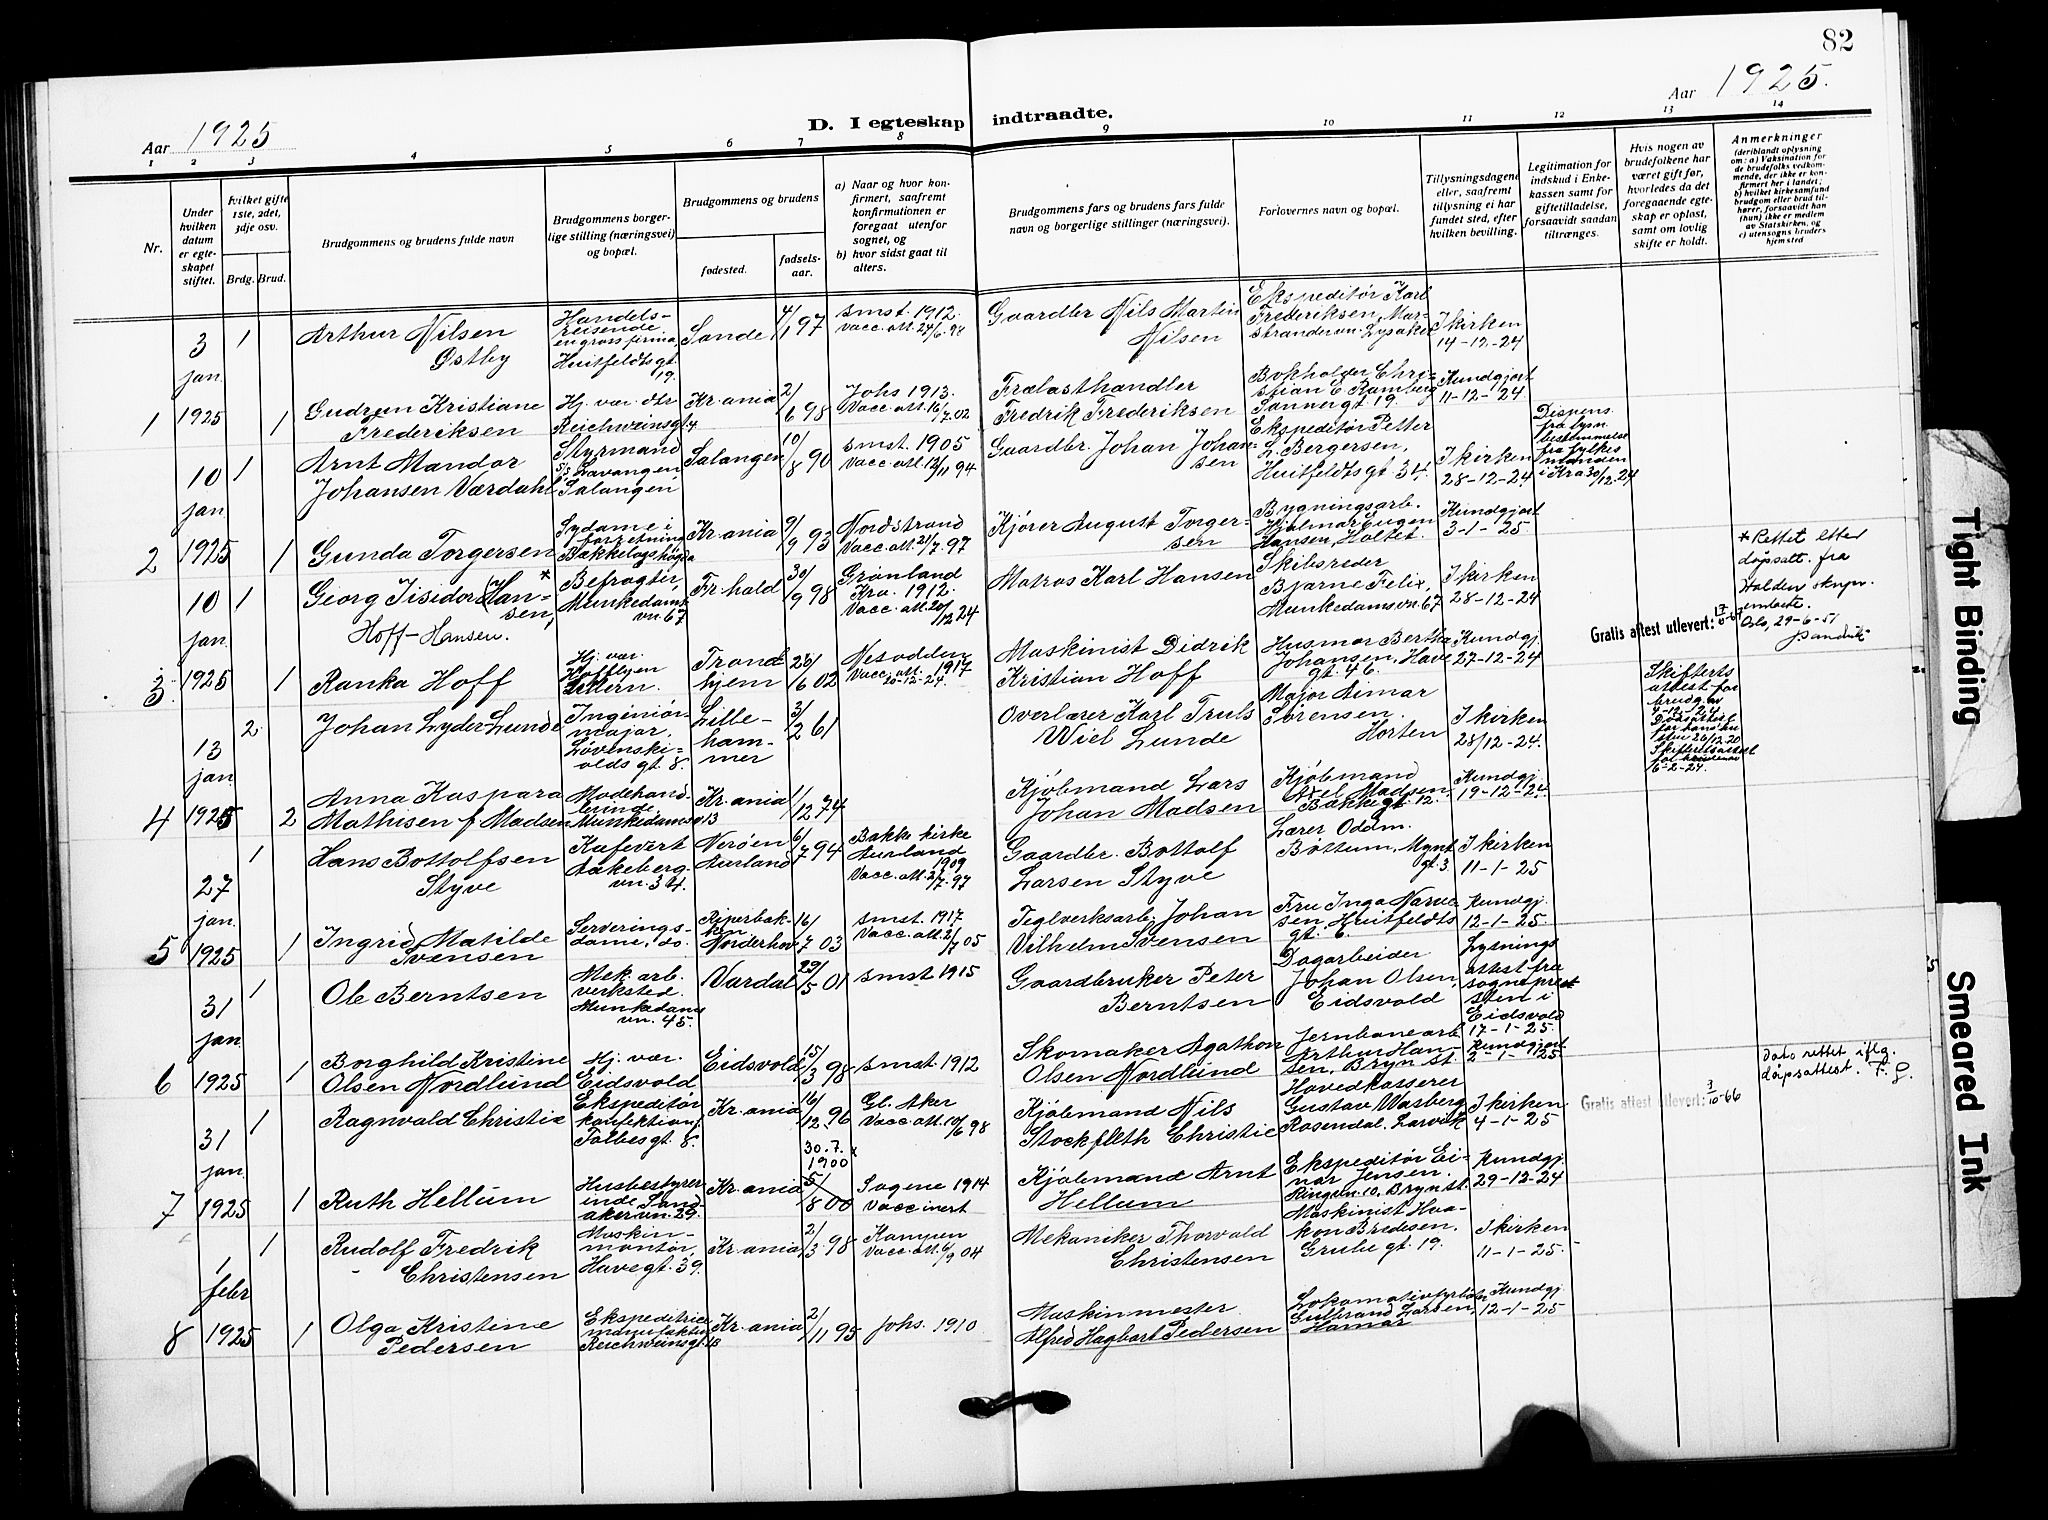 82
Aar 1925
D. I egteskap indtraadte.
Aar 1925.
1 2 3 4 5 6 7 8 9 10 11 12 13 14
Nr.
Under hvilken datum er egteskapet stiftet.
Hvilket gifte 1ste, 2det, 3dje osv.
Brdg. Brud.
Brudgommens og brudens fulde navn
Brudgommens borgerlige stilling (næringsvei) og bopæl.
Brudgommens og brudens
fødested.
fødselsaar.
a) Naar og hvor konfirmert, saafremt konfirmationen er foregaat utenfor sognet, og
b) hvor sidst gaat til alters.
Brudgommens fars og brudens fars fulde navn og borgerlige stillinger (næringsvei).
Forlovernes navn og bopæl.
Tillysningsdagene eller, saafremt tillysning ei har fundet sted, efter hvilken bevilling.
Legitimation for indskud i Enkekassen samt for giftetilladelse, forsaavidt saadan tiltrænges.
Hvis nogen av brudefolkene har været gift før, hvorledes da det foregaaende egteskap er opløst, samt om lovlig skifte er holdt.
Anmerkninger
(deriblandt oplysning om: a) Vaksination for de brudefolks vedkommende, der ikke er konfirmert her i landet; b) hvilket kirkesamfund brudgom eller brud tilhører, forsaavidt han (hun) ikke er medlem av Statskirken, og c) utensogns bruders hjemsted
1 3 jan 1925
1 Arthur Nilsen Østby
Handelsreisende engrosfirma, Huitfeldtsgt. 19.
Sande 4/1 97
smst. 1912. Vacc. att. 24/6. 98
Gaardbr Nils Martin Nilsen
Ekspeditør Karl Frederiksen, Marstrandervn. Lysaker
I kirken 14-12-24
1 Gudrun Kristiane Frederiksen
Hj. vær. Reichweinsgt 4
Kr.ania 2/6 98
Johs 1913. Vacc. att. 16/7. 02
Frelasthandler Fredrik Frederiksen
Bokholder Christian E Ramberg Sannergt. 19.
Kundgjort 11-12-24
2 10 jan 1925
1 Arnt Mandor Johansen Værdahl
Styrmand s/s Lavangen Salangen
Salangen 10/8 90
smst. 1905 Vacc. att. 12/11 94
Gaardbr. Johan Johansen
Ekspeditør Petter L. Bergersen, Huitfeldtsgt 34,
I kirken 28-12-24
Dispens. fra lysn. bestemmelse fra fylkesmanden i Kra 30/12.24
1 Gunda Torgersen
Sydame i forretning Bækkelagshøgda
Kr.ania 9/9 93
Nordstrand Vacc. att. 21/7. 97
Kjører August Torgersen
Bygningsarb. Hjalmar Eugen Hansen, Holtet.
Kundgjort 3-1-25
3 10 jan 1925
1 Georg Isidor (Hansen,* Hoff-Hansen.
Befragter, Munkedamsvn. 67
Fr.hald 30/9 98
Grønland Kra. 1912. Vacc. att. 20/12 24
Matros Karl Hansen
Skibsreder Bjarne Felix, Munkedamsvn. 67
I kirken 28-12-24
Gratis attest utlevert:
* Rettet etter dåpsatt. fra Halden sknpr. embete. Oslo, 29-6-51
1 Ranka Hoff
Hj. vær. Hoffbyen Skern.
Trondhjem 26/6 02
Nesodden 1917 Vacc. att. 20-12-24.
Maskinist Didrik Kristian Hoff
Husmor Bertha Johansen, Havegt. 46.
Kundgj. 27-12-24
4 13 jan 1925
2 Johan Lyder Lunde
Ingeniør major. Løvenskioldsgt. 8.
Lillehammer 3/2 61
Overlærer Karl Truls Wiel Lunde
Major Aimar Sørensen. Horten
I kirken 28/12-24.
Skifterts attest for brudg. av 4-12-24.
Dødsattest for hans hustru 26/12.20
6-2-24.
2 Anna Kaspara Mathisen f Madsen
Modehandlerinde, Munkedamsvn 13
Kr.ania 1/12 74
Kjøbmand Lars Johan Madsen
Kjøbmand Axel Madsen, Bakkegt. 12.
Kundgj. 19-12-24.
5 27 jan. 1925
1 Hans Bottolfsen Styve
Kafevert Aakebergvn. 34.
Nerøen Aurland 6/7 94
Bakke kirke Aurland 1909 Vacc. att. 21/7. 97
Gaardbr. Bottolf Larsen Styve
Lærer Oddm. Bøttum, Myntgt. 3.
I kirken 11-1-25
1 Ingrid Matilde Svensen
Serveringsdame, do.
Norderhov 16/7 03
smst. 1917 Vacc. att. 2/7 05
Teglverksarb. Johan Vilhelm Svensen
Fru Inga Narvesen, Huitfeldtsgt. 6.
Kundgj. 12-1-25.
6 31 jan 1925
1 Ole Berntsen
Mek. arb. verksted. Munkedamsvn. 45.
Vardal 29/5 01
smst 1915
Gaardbruker Peter Berntsen
Dagarbeider Johan Olsen, Eidsvold
Lysningsattest fra sognepresten i Eidsvold 17-1-25.
1 Borghild Kristine Olsen Nordlund
Hj. vær. Eidsvold
Eidsvold 15/3 98
smst. 1912
Skomaker Agathon Olsen Nordlund
Jernbanearb Arthur Hansen, Bryn st.
Kundgjort 2-1-25
7 31 jan 1925
1 Ragnvald Christie
Ekspeditør konfektion, Falbesgt. 8.
Kr.ania 16/12. 96
Gl. Aker Vacc. att. 10/6 98
Kjøbmand Nils Stockfleth Christie
Hovedkasserer Gustav Wasberg Rosendal, Larvik
I kirken 4-1-25
Gratis attest utlevert: 3/10-66
Dato rettet iflg. dåpsattest. F. G.
1 Ruth Hellum
Husbestyrerinde Sandakervn. 29.
Kr.ania 30.7. x 1900 5/8 00
Sagene 1914 Vaccinert
Kjøbmand Arnt Hellum
Ekspeditør Einar Jensen. Ringvn. 10, Bryn st.
Kundgj. 29-12-24
8 1 febr 1925
1 Rudolf Fredrik Christensen
Maskinmontør, Havegt. 39.
Kr.ania 2/3 98
Kampen Vacc. att. 6/9 04
Mekaniker Thorvald Christensen
Maskinist Haakon Bredesen, Grubegt. 19.
I kirken 11-1-25.
1 Olga Kristine Pedersen
Ekspeditrice manufaktur Reichweinsgt. 18
Kr.ania 2/11 95
Johs. 1910
Maskinmester Alfred Hagbart Pedersen
Lokomotivfyrbøter Gulbrand Larsen, Hamar
Kundgj. 12-1-25
Tight Binding
Smeared Ink